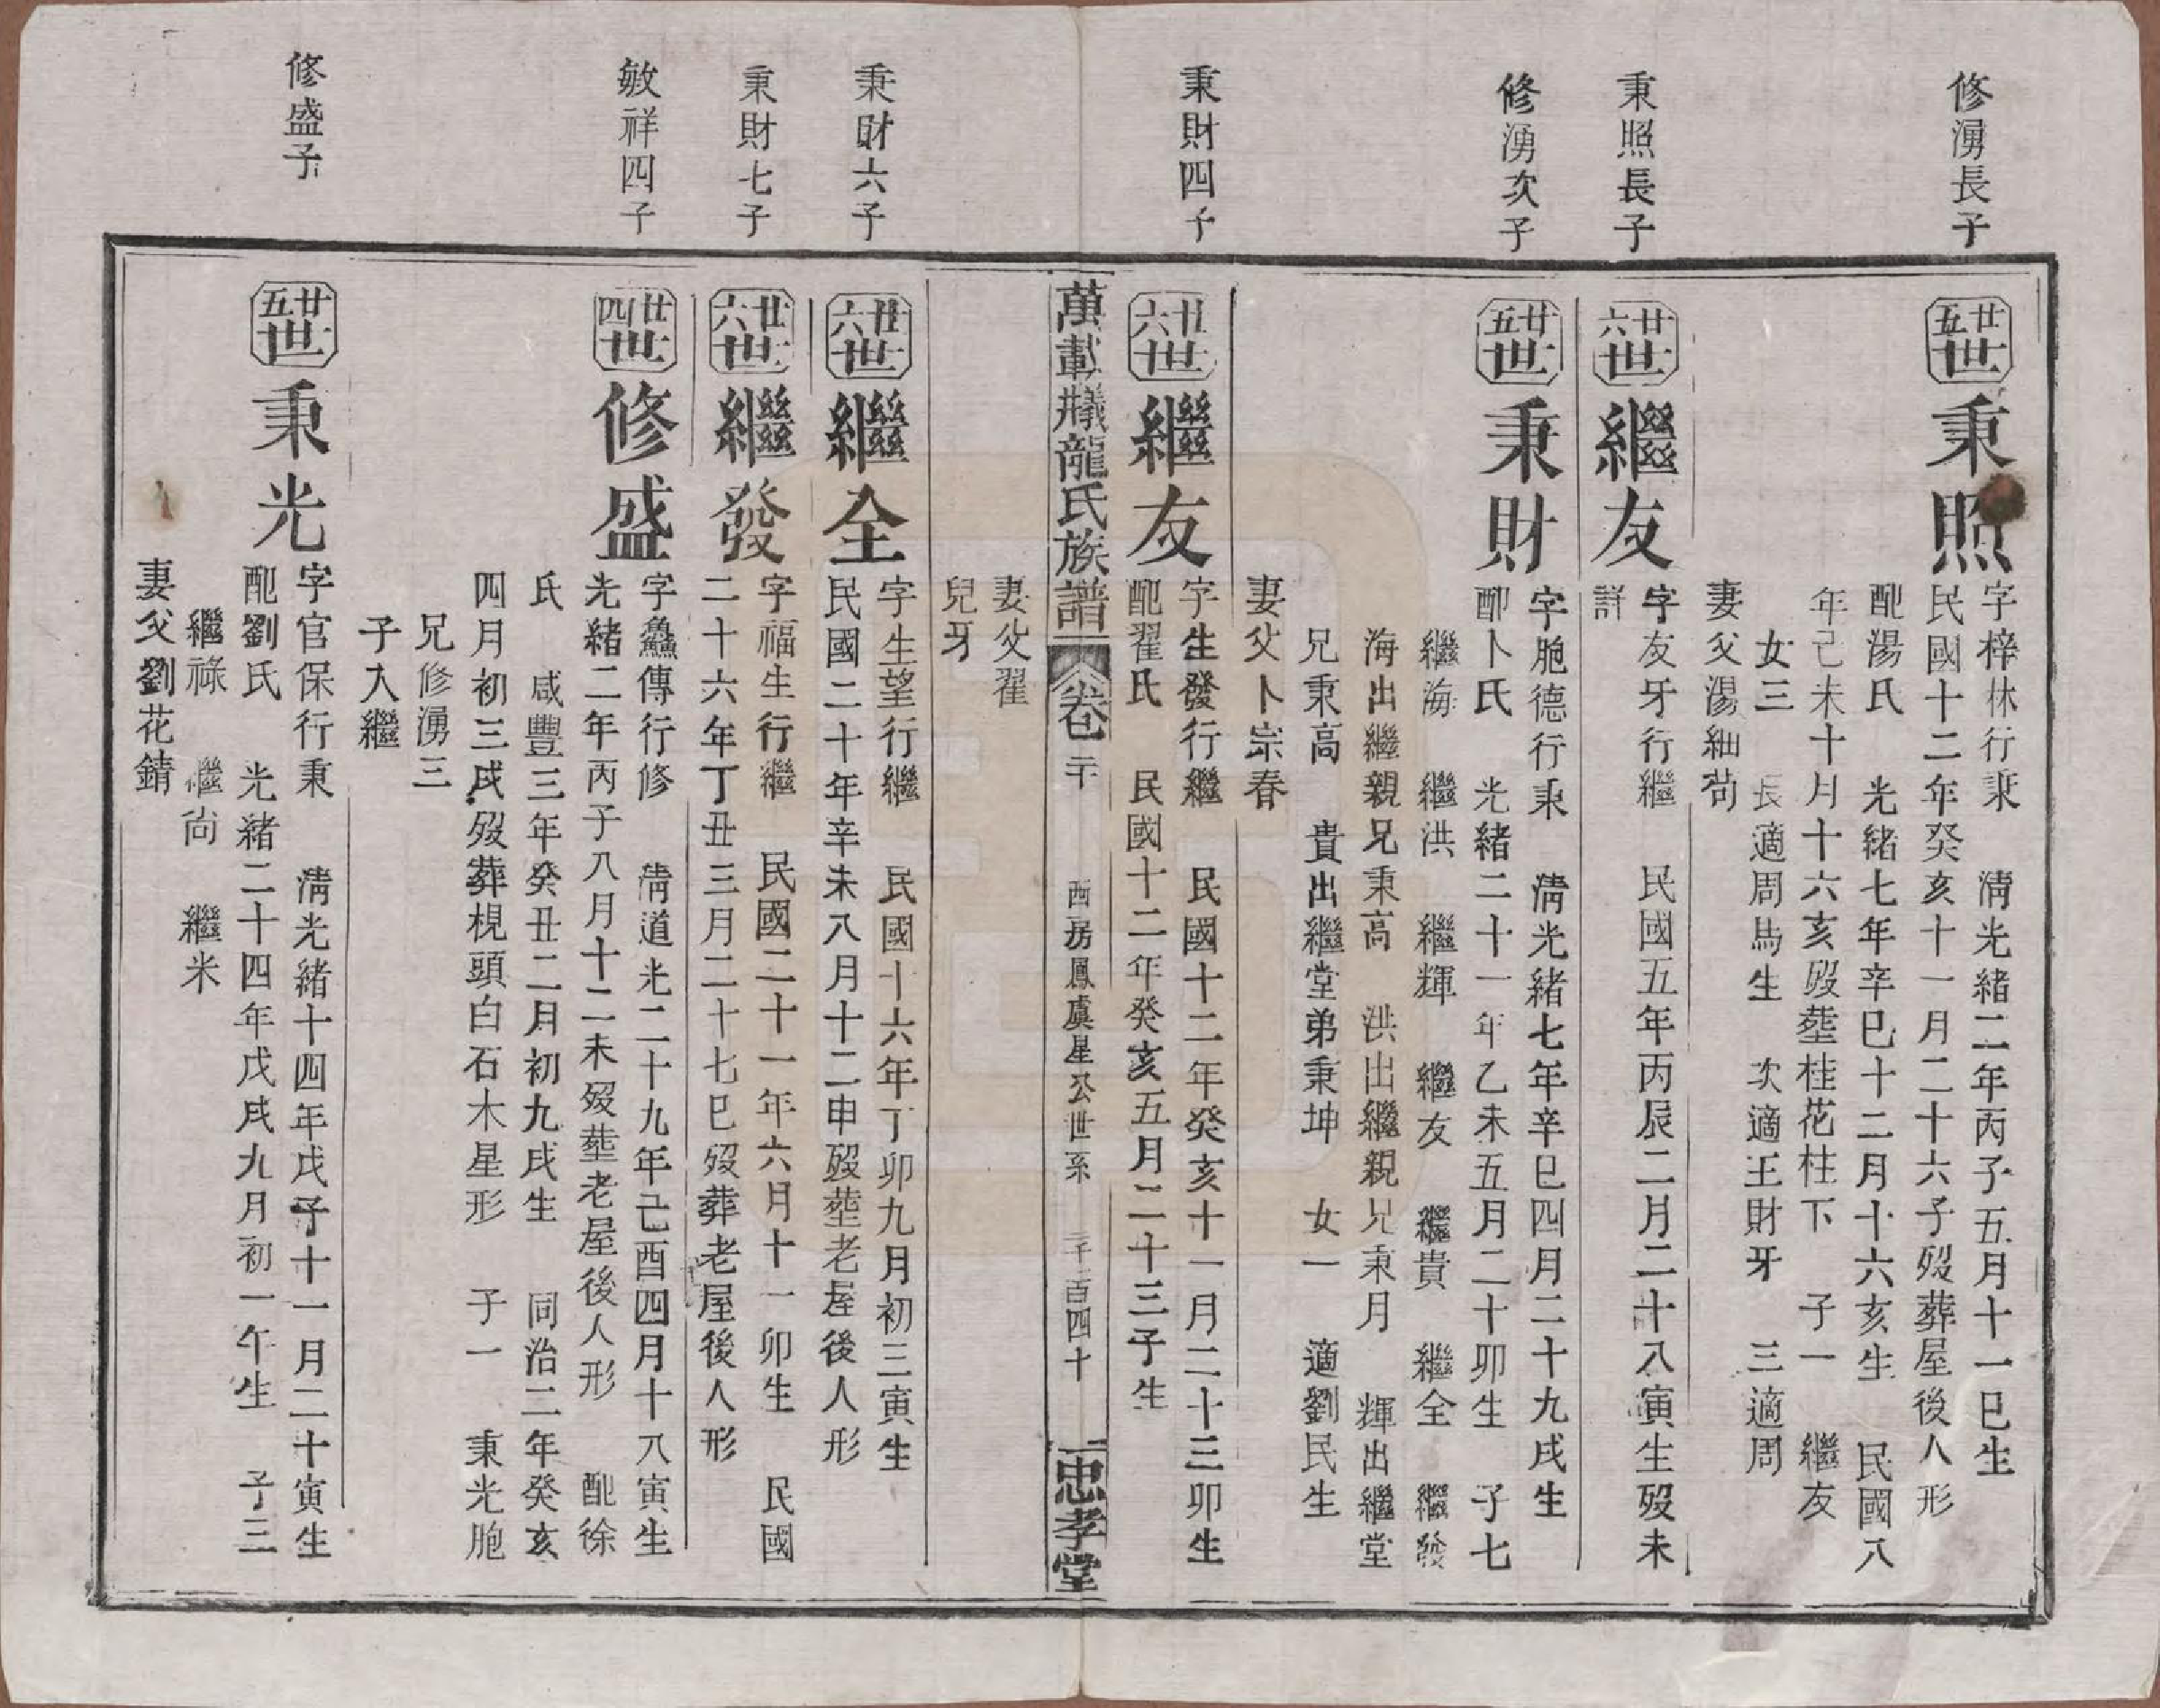 修湧長子
廿五世
秉照
字梓林行秉　清光緒二年丙子五月十一巳生
民國十二年癸亥十一月二十六子歿葬屋後人形
配湯氏　光緒七年辛巳十二月十六亥生　民國八
年己未十月十六亥歿塟桂花柱下　子一　繼友
女三　長適周馬生　次適王財牙　三適周
妻父湯細茍
秉照長子
廿六世
繼友
字友牙行繼　民國五年丙辰二月二十八寅生歿未
詳
修湧次子
廿五世
秉財
字胞德行秉　清光緒七年辛巳四月二十九戌生
配卜氏　光緒二十一年乙未五月二十卯生　子七
繼海　繼洪　繼輝　繼友　繼貴　繼全　繼發
海出繼親兄秉高　洪出繼親兄秉月　輝出繼堂
兄秉高　貴出繼堂弟秉坤　女一　適劉民生
妻父卜宗春
秉財四子
廿六世
繼友
字生發行繼　民國十二年癸亥十一月二十三卯生
配翟氏　民國十二年癸亥五月二十三子生
萬載檥龍氏族譜
卷二十
西房鳳虞星公世系
百四十
忠孝堂
妻父翟
兒牙
秉財六子
廿六世
繼全
字生望行繼　民國十六年丁卯九月初三寅生
民國二十年辛未八月十二申歿塟老屋後人形
秉財七子
廿六世
繼發
字福生行繼　民國二十一年六月十一卯生　民國
二十六年丁丑三月二十七巳歿葬老屋後人形
敏祥四子
廿四世
修盛
字鱻傳行修　清道光二十九年己酉四月十八寅生
光緒二年丙子八月十二未歿塟老屋後人形　配徐
氏　咸豐三年癸丑二月初九戌生　同治二年癸亥
四月初三戌歿葬梘頭白石木星形　子一　秉光胞
兄修湧三
子入繼
修盛子
廿五世
秉光
字官保行秉　清光緒十四年戊子十一月二十寅生
配劉氏　光緒二十四年戊戌九月初一午生　子三
繼祿　繼尚　繼米
妻父劉花錆